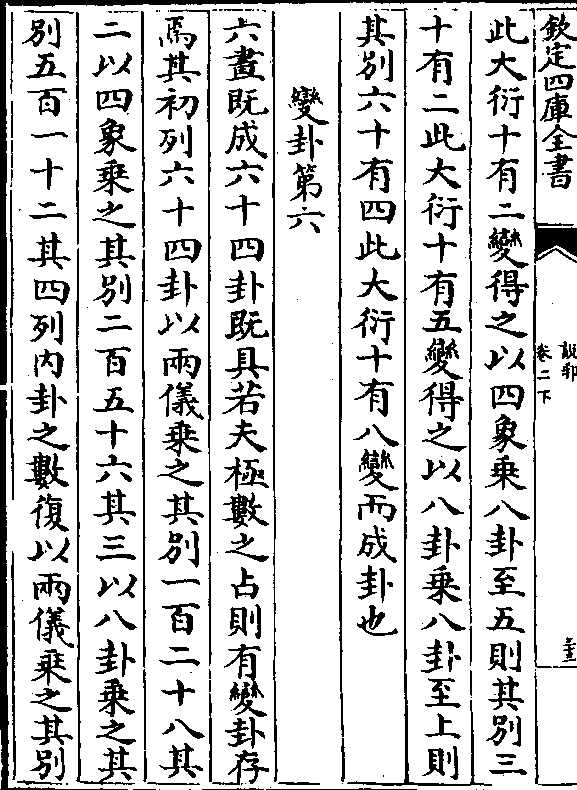 欽定四庫全書
說卦
卷二下
此大衍十有二變得之以四象乗八卦至五則其别三
十有二此大衍十有五變得之以八卦乗八卦至上則
其别六十有四此大衍十有八變而成卦也
變卦第六
六畫既成六十四卦既具若夫極數之占則有變卦存
焉其初列六十四卦以兩儀乗之其别一百二十八其
二以四象乗之其别二百五十六其三以八卦乗之其
别五百一十二其四列内卦之數復以兩儀乗之其别